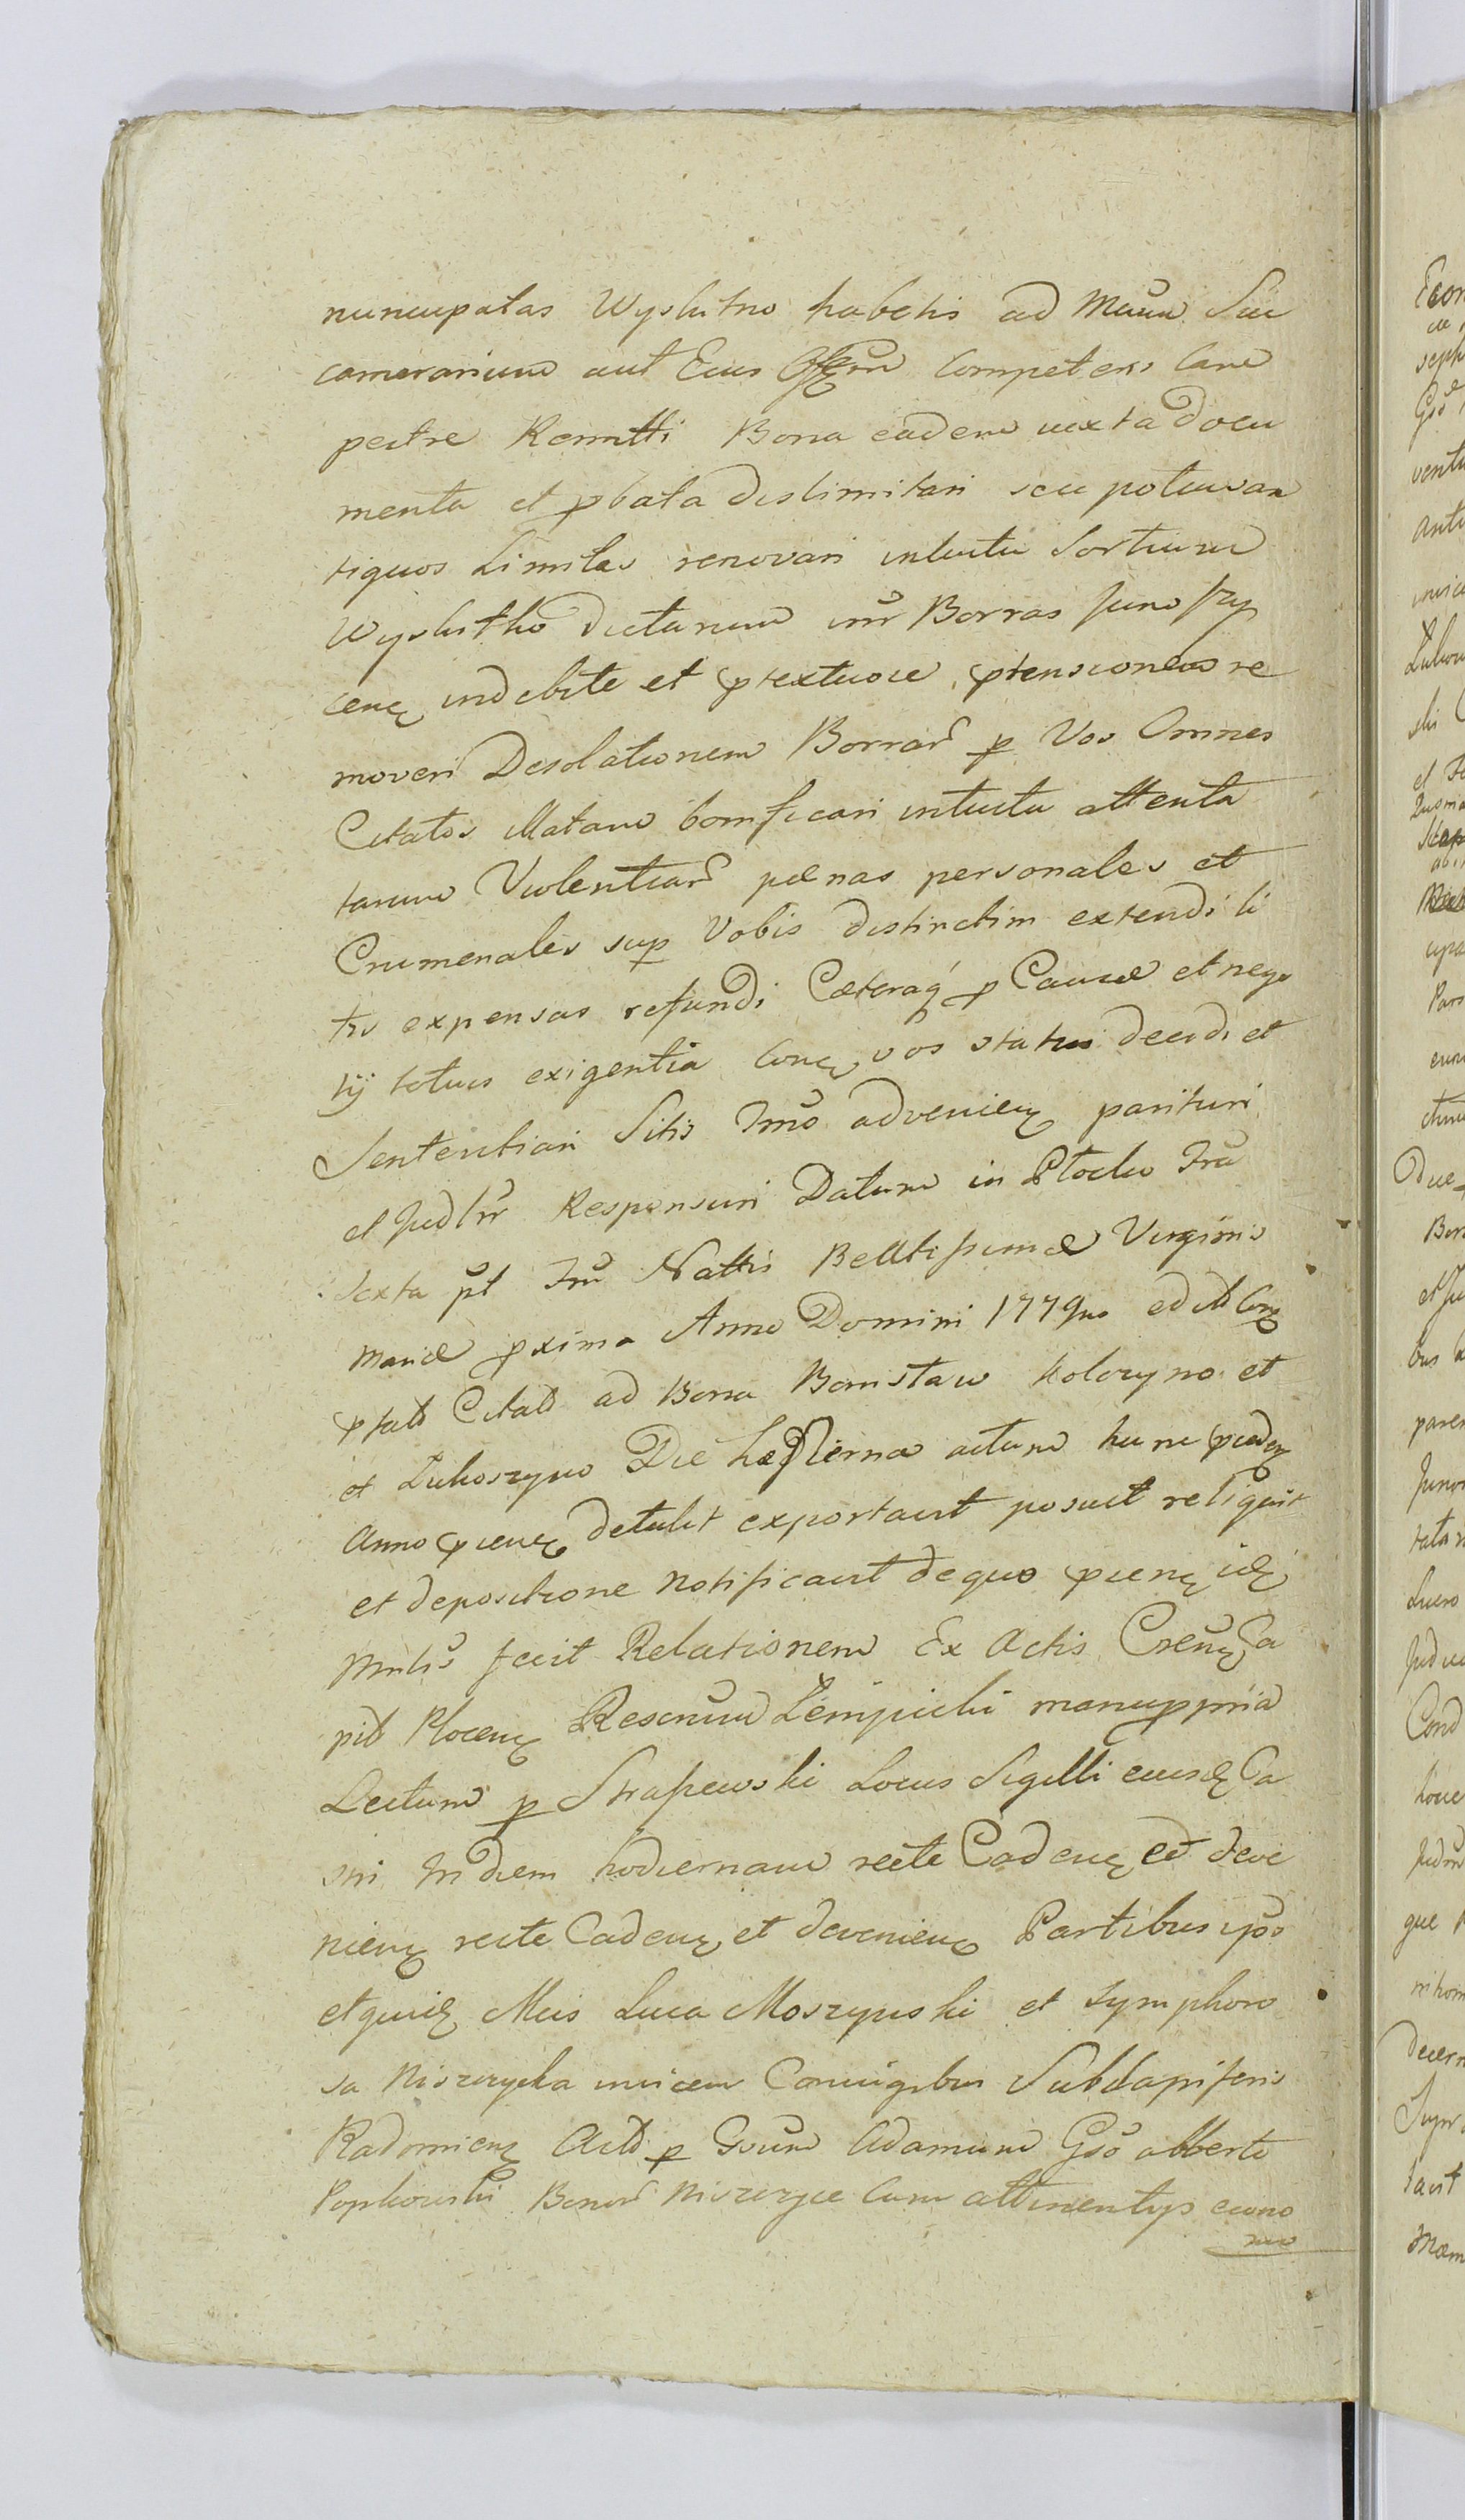 nuncupatas Wyslutno habetis ad Mum Suc
camerarium aut Eius Offem Competens Cam
pestre Remitti Bona eadem iuxta docu
menta et pbata dislimitari seu potius an
tiquos Limites renovari intuitu Sortium
Wyslutho dictarum inr Borras Juno szy
cen indebite et ptextuose ptensiones re
moveri Desolationem Borrar p Vos Omnes
Citatos illatam bonificari intuitu attenta
tarum Violentiar pœnas personales et
Crumenales sup Vobis distinctim extendi li
tis expensas refundi Cœteraq p Causæ et nego
tij totius exigentia Conc vos statui decidi et
Sententiari Sitis Imo advenien parituri
et Judlr Responsuri Datum in Plocko Fra
Sexta pt Fm Nattis Bellissimæ Virginis
Mariæ pxima Anno Domini 1779no editd Cong
ptatd Citatd ad Bona Bomstaw Koloryno et
et Lukoszyno Die hæsterna actum hunc pieden
Anno pien detulit exportavit posuit reliquit
et depositione notificavit de quo pien idē
Mntis fecit Relationem Ex Actis Cren Ca
pit Plocen Rescrum Lempicki manu ppria
Lectum p Strasewski Locus Sigilli eiusd Ca
sri In diem hodiernam recte Caden et deve
nien recte Caden et devenien Partibus ipso
et quid Meis Luca Moszynski et Symphoro
sa Niszczycka invicem Coniugibus Subdapiferis
Radomien Actd p Gsum Adamum Gso Alberto
Popkowski Bonor Niszczyce Cum attinentys econo
mo